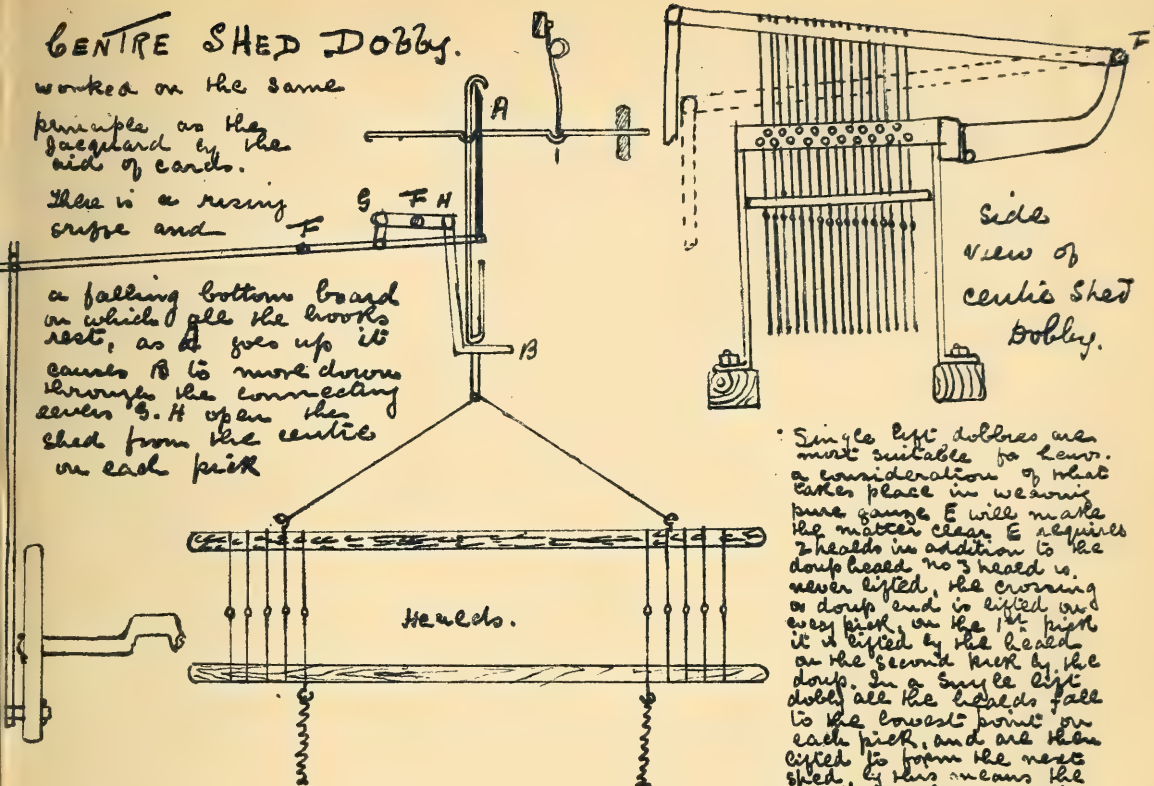 CENTRE SHED DOBBY.
worked on the same
principle as the
Jacquard by the
aid of cards.
There is a rising
griffe and
a falling bottom board
on which all the hooks
rest, as A goes up it
causes B to move down
through the connecting
levers G. H open the
shed from the centre
on each pick
A
G F H
F
B
Healds.
F
side
view of
centre Shed
Dobby.
Single lift dobbies are
most suitable for lenos.
a consideration of what
takes place in weaving
pure gauze E will make
the matter clear E requires
2 healds in addition to the
doup heald no 3 heald is
never lifted, the crossing
or doup end is lifted on
every pick, on the 1st pick
it is lifted by the heald
on the second pick by the
doup. In a Single lift
dobby all the healds fall
to the lowest point on
each pick, and are then
lifted to form the next
shed, by this means the